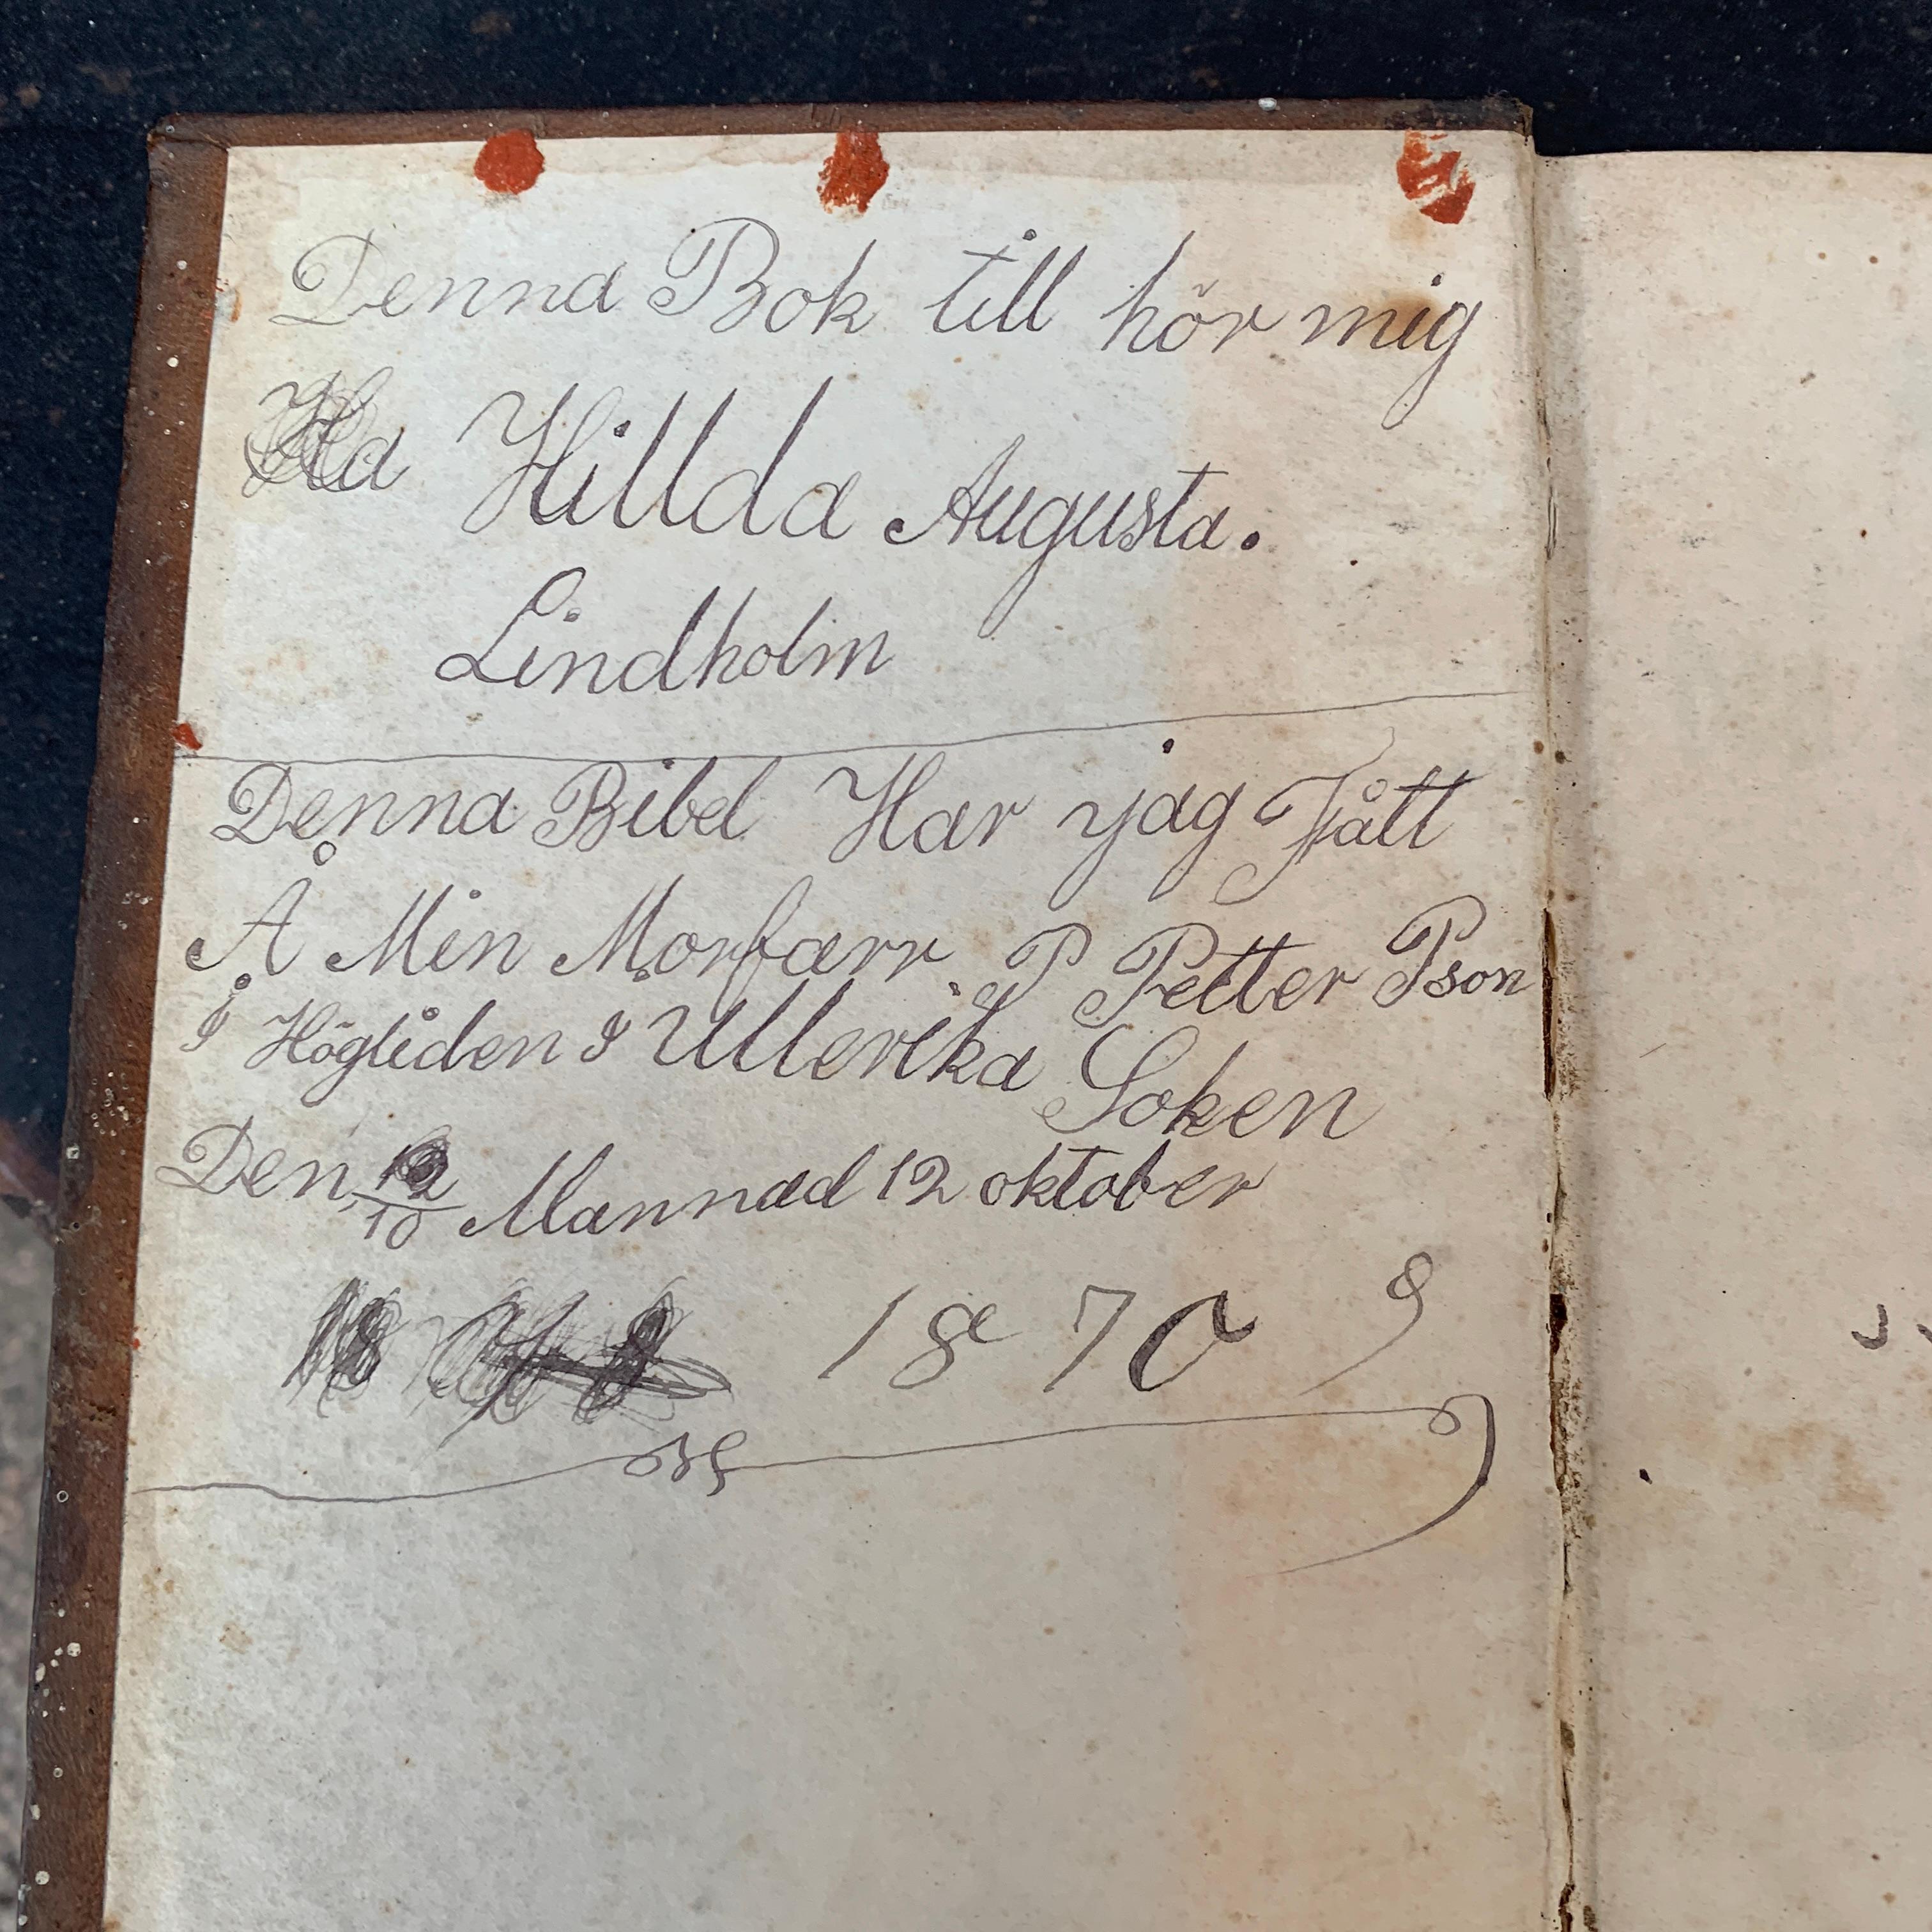 Denna Bok till hör mig
Ha Hillda Augusta.
Lindholm
Denna Bibel Har jag Fått
Å Min Morfarr P Petter Pson
I Högliden I Ullerika Soken
Den 12/10 Mannad 12 oktober
18 1870